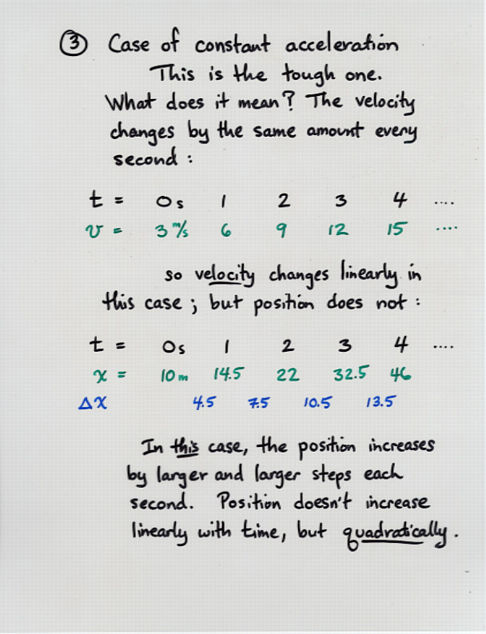 ③ Case of constant acceleration
This is the tough one.
What does it mean? The velocity
changes by the same amount every
second :
t = 0s 1 2 3 4 ....
v = 3 m/s 6 9 12 15 ....
so velocity changes linearly in
this case ; but position does not :
t = 0s 1 2 3 4 ....
x = 10m 14.5 22 32.5 46
Δx 4.5 7.5 10.5 13.5
In this case, the position increases
by larger and larger steps each
second. Position doesn't increase
linearly with time, but quadratically.